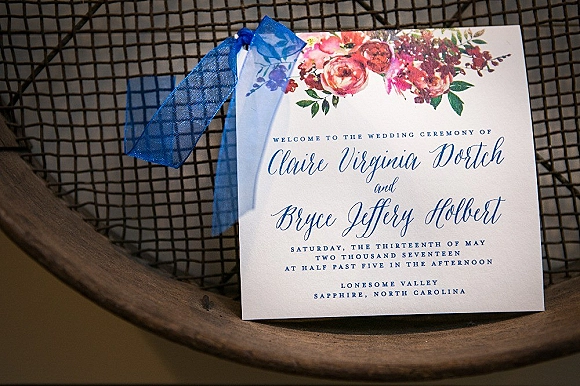 WELCOME TO THE WEDDING CEREMONY OF
Claire Virginia Dortch
and
Bryce Jeffery Holbert
SATURDAY, THE THIRTEENTH OF MAY
TWO THOUSAND SEVENTEEN
AT HALF PAST FIVE IN THE AFTERNOON
LONESOME VALLEY
SAPPHIRE, NORTH CAROLINA